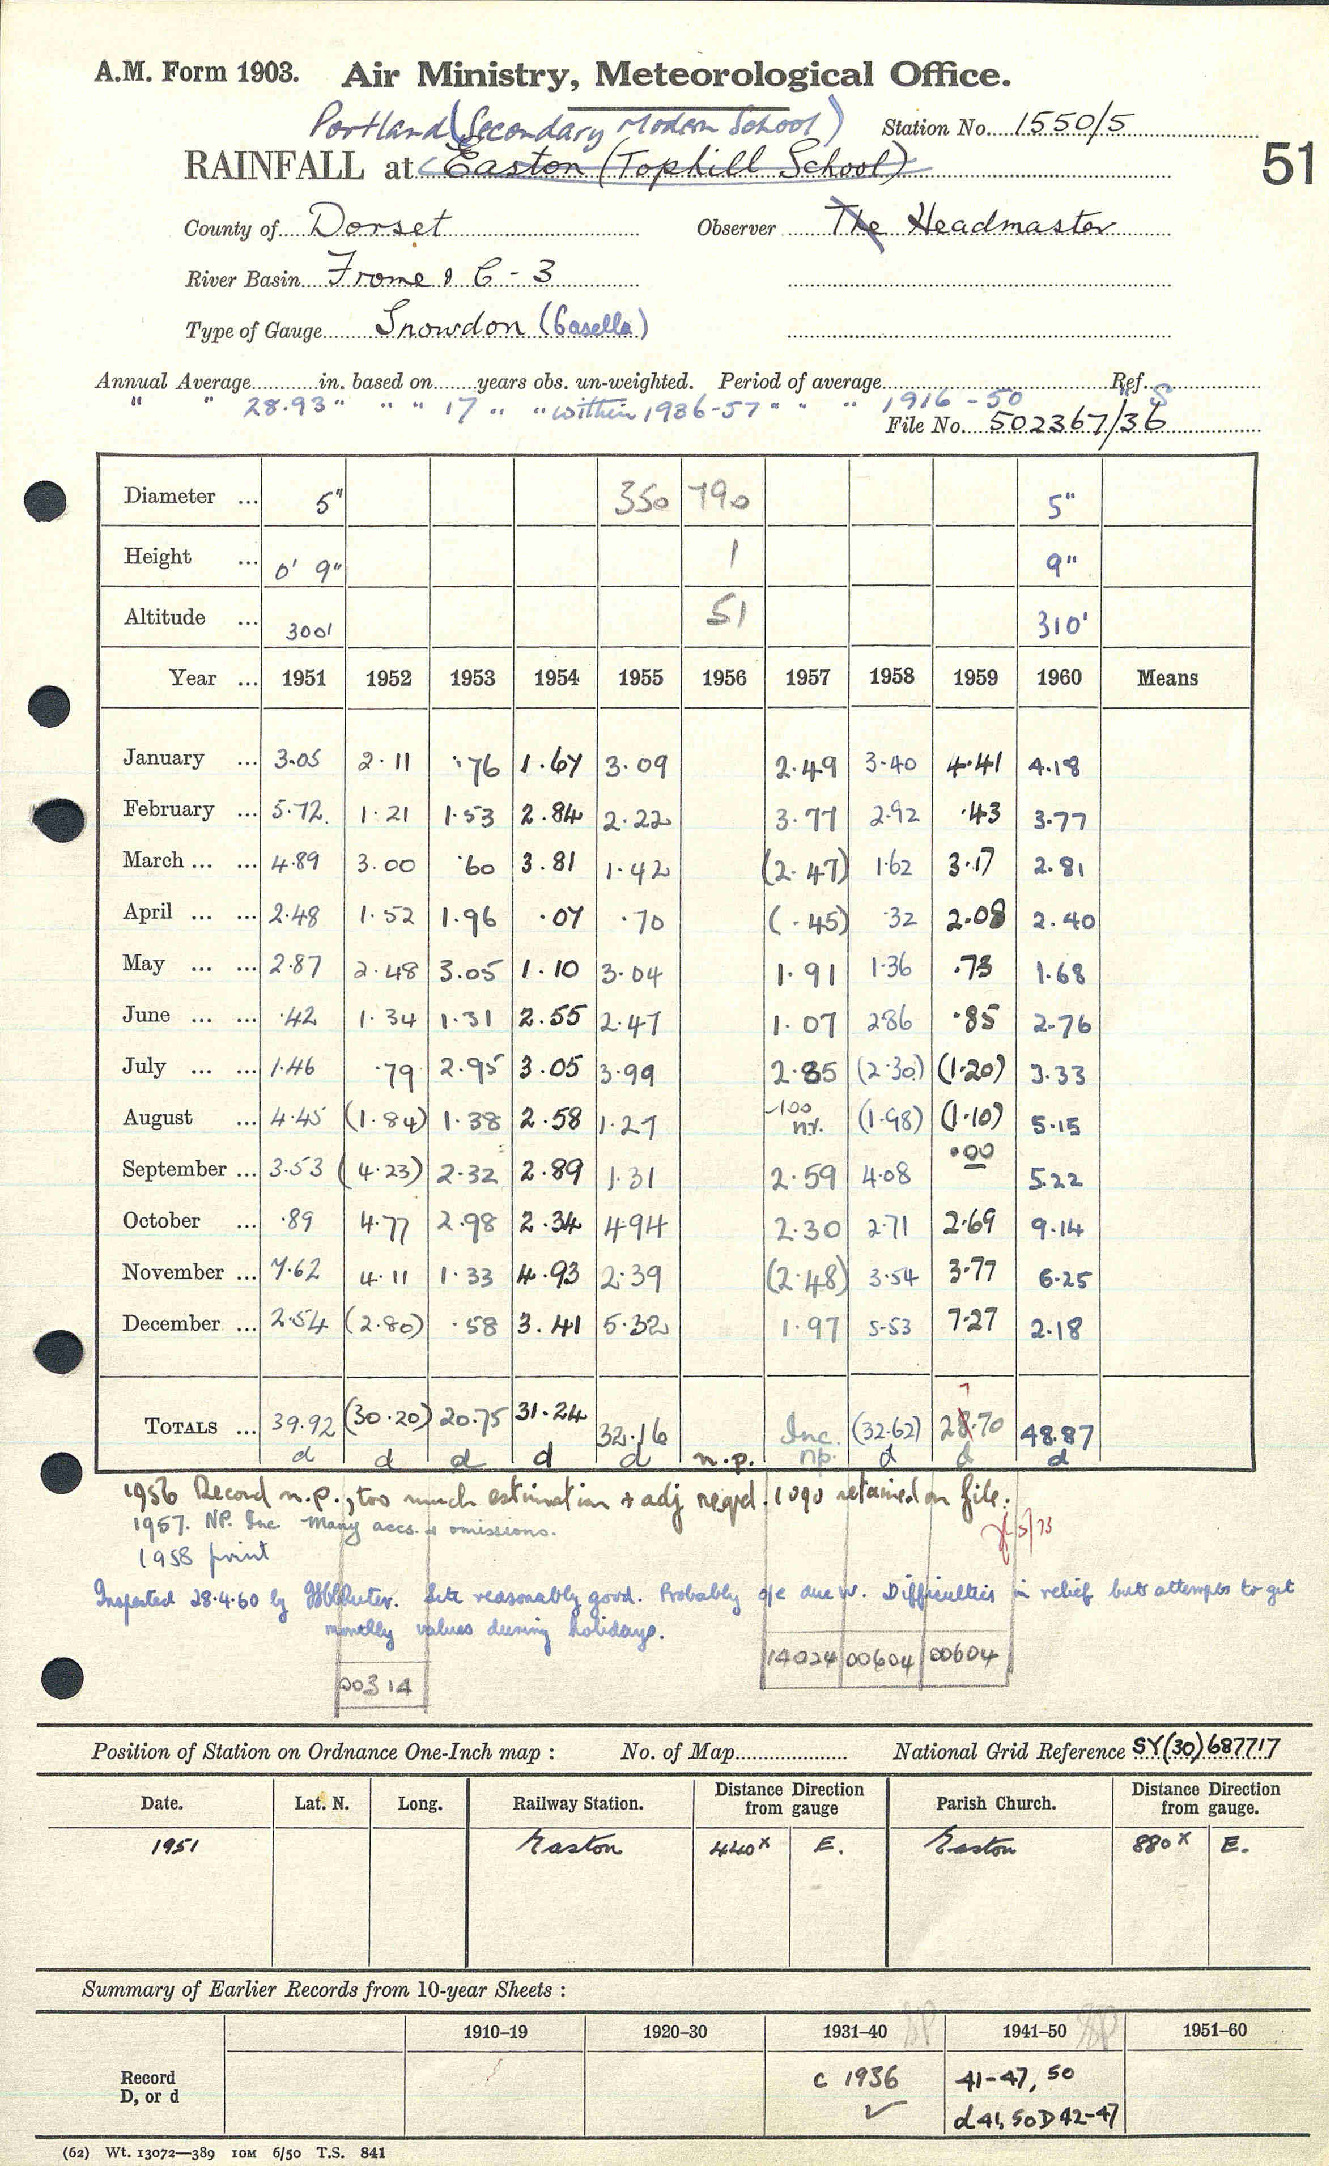 A.M. Form 1903. Air Ministry, Meteorological Office.
Portland (Secondary Modern School) Station No. 1550/5
RAINFALL at Easton (Tophill School)
51
County of Dorset Observer The Headmaster
River Basin Frome & C - 3
Type of Gauge Snowdon (Casella)
Annual Average in. based on years obs. un-weighted. Period of average Ref. S
" " 28.93 " " " 17 " " within 1936-57 " " " 1916-50
File No. 502367/36
Diameter ... 5" 350 790 5"
Height ... 0' 9" 1 9"
Altitude ... 300' 51 310'
Year ... 1951 1952 1953 1954 1955 1956 1957 1958 1959 1960 Means
January ... 3.05 2.11 .76 1.67 3.09 2.49 3.40 4.41 4.18
February ... 5.72 1.21 1.53 2.84 2.22 3.77 2.92 .43 3.77
March ... ... 4.89 3.00 .60 3.81 1.42 (2.47) 1.62 3.17 2.81
April ... ... 2.48 1.52 1.96 .07 .70 (.45) .32 2.08 2.40
May ... ... 2.87 2.48 3.05 1.10 3.04 1.91 1.36 .73 1.68
June ... ... .42 1.34 1.31 2.55 2.47 1.07 2.86 .85 2.76
July ... ... 1.46 .79 2.95 3.05 3.99 2.85 (2.30) (1.20) 3.33
August ... 4.45 (1.84) 1.38 2.58 1.27 (1.98) (1.10) 5.15
September ... 3.53 (4.23) 2.32 2.89 1.31 2.59 4.08 .00 5.22
October ... .89 4.77 2.98 2.34 4.94 2.30 2.71 2.69 9.14
November ... 7.62 4.11 1.33 4.93 2.39 (2.48) 3.54 3.77 6.25
December ... 2.54 (2.80) .58 3.41 5.32 1.97 5.53 7.27 2.18
TOTALS ... 39.92 (30.20) 20.75 31.24 32.16 Inc. (32.62) 28.70 48.87
7
d d d d d n.p. n.p. d d d
1956 Record n.p., too much estimation & adj reqd. 1090 retained on file.
1957. NP. Inc Many accs. & omissions.
5/73
1958 print
Inspected 28.4.60 by Site reasonably good. Probably o/e due W. Difficulties in relief but attempts to get
monthly values during holidays.
14024 00604 00604
00314
Position of Station on Ordnance One-Inch map : No. of Map National Grid Reference SY(30)687717
Date. Lat. N. Long. Railway Station. Distance Direction from gauge Parish Church. Distance Direction from gauge.
1951 Easton 440x E. Easton 880x E.
Summary of Earlier Records from 10-year Sheets :
1910–19 1920–30 1931–40 1941–50 1951–60
Record c 1936 41-47, 50
D, or d d 41, 50 D 42-47
(62) Wt. 13072—389 10M 6/50 T.S. 841